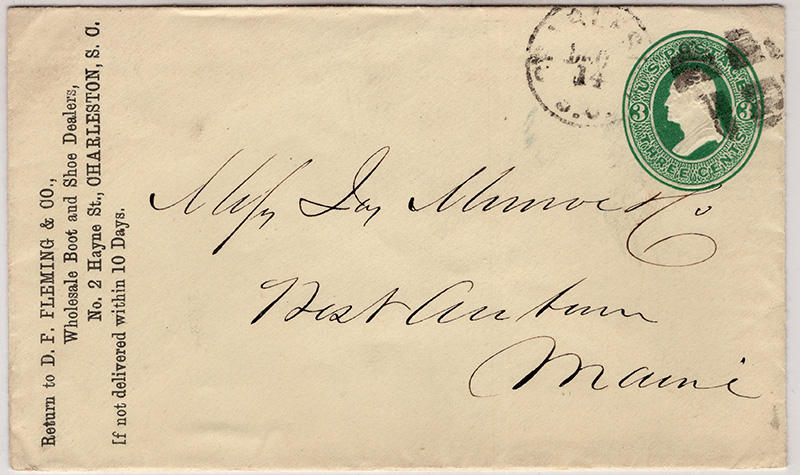 Return to D. F. FLEMING & CO.,
Wholesale Boot and Shoe Dealers,
No. 2 Hayne St., CHARLESTON, S. C.
If not delivered within 10 Days.
14
S.C.
U.S. POSTAGE
3 3
THREE CENTS
Messrs Jas Munroe & Co
West Auburn
Maine